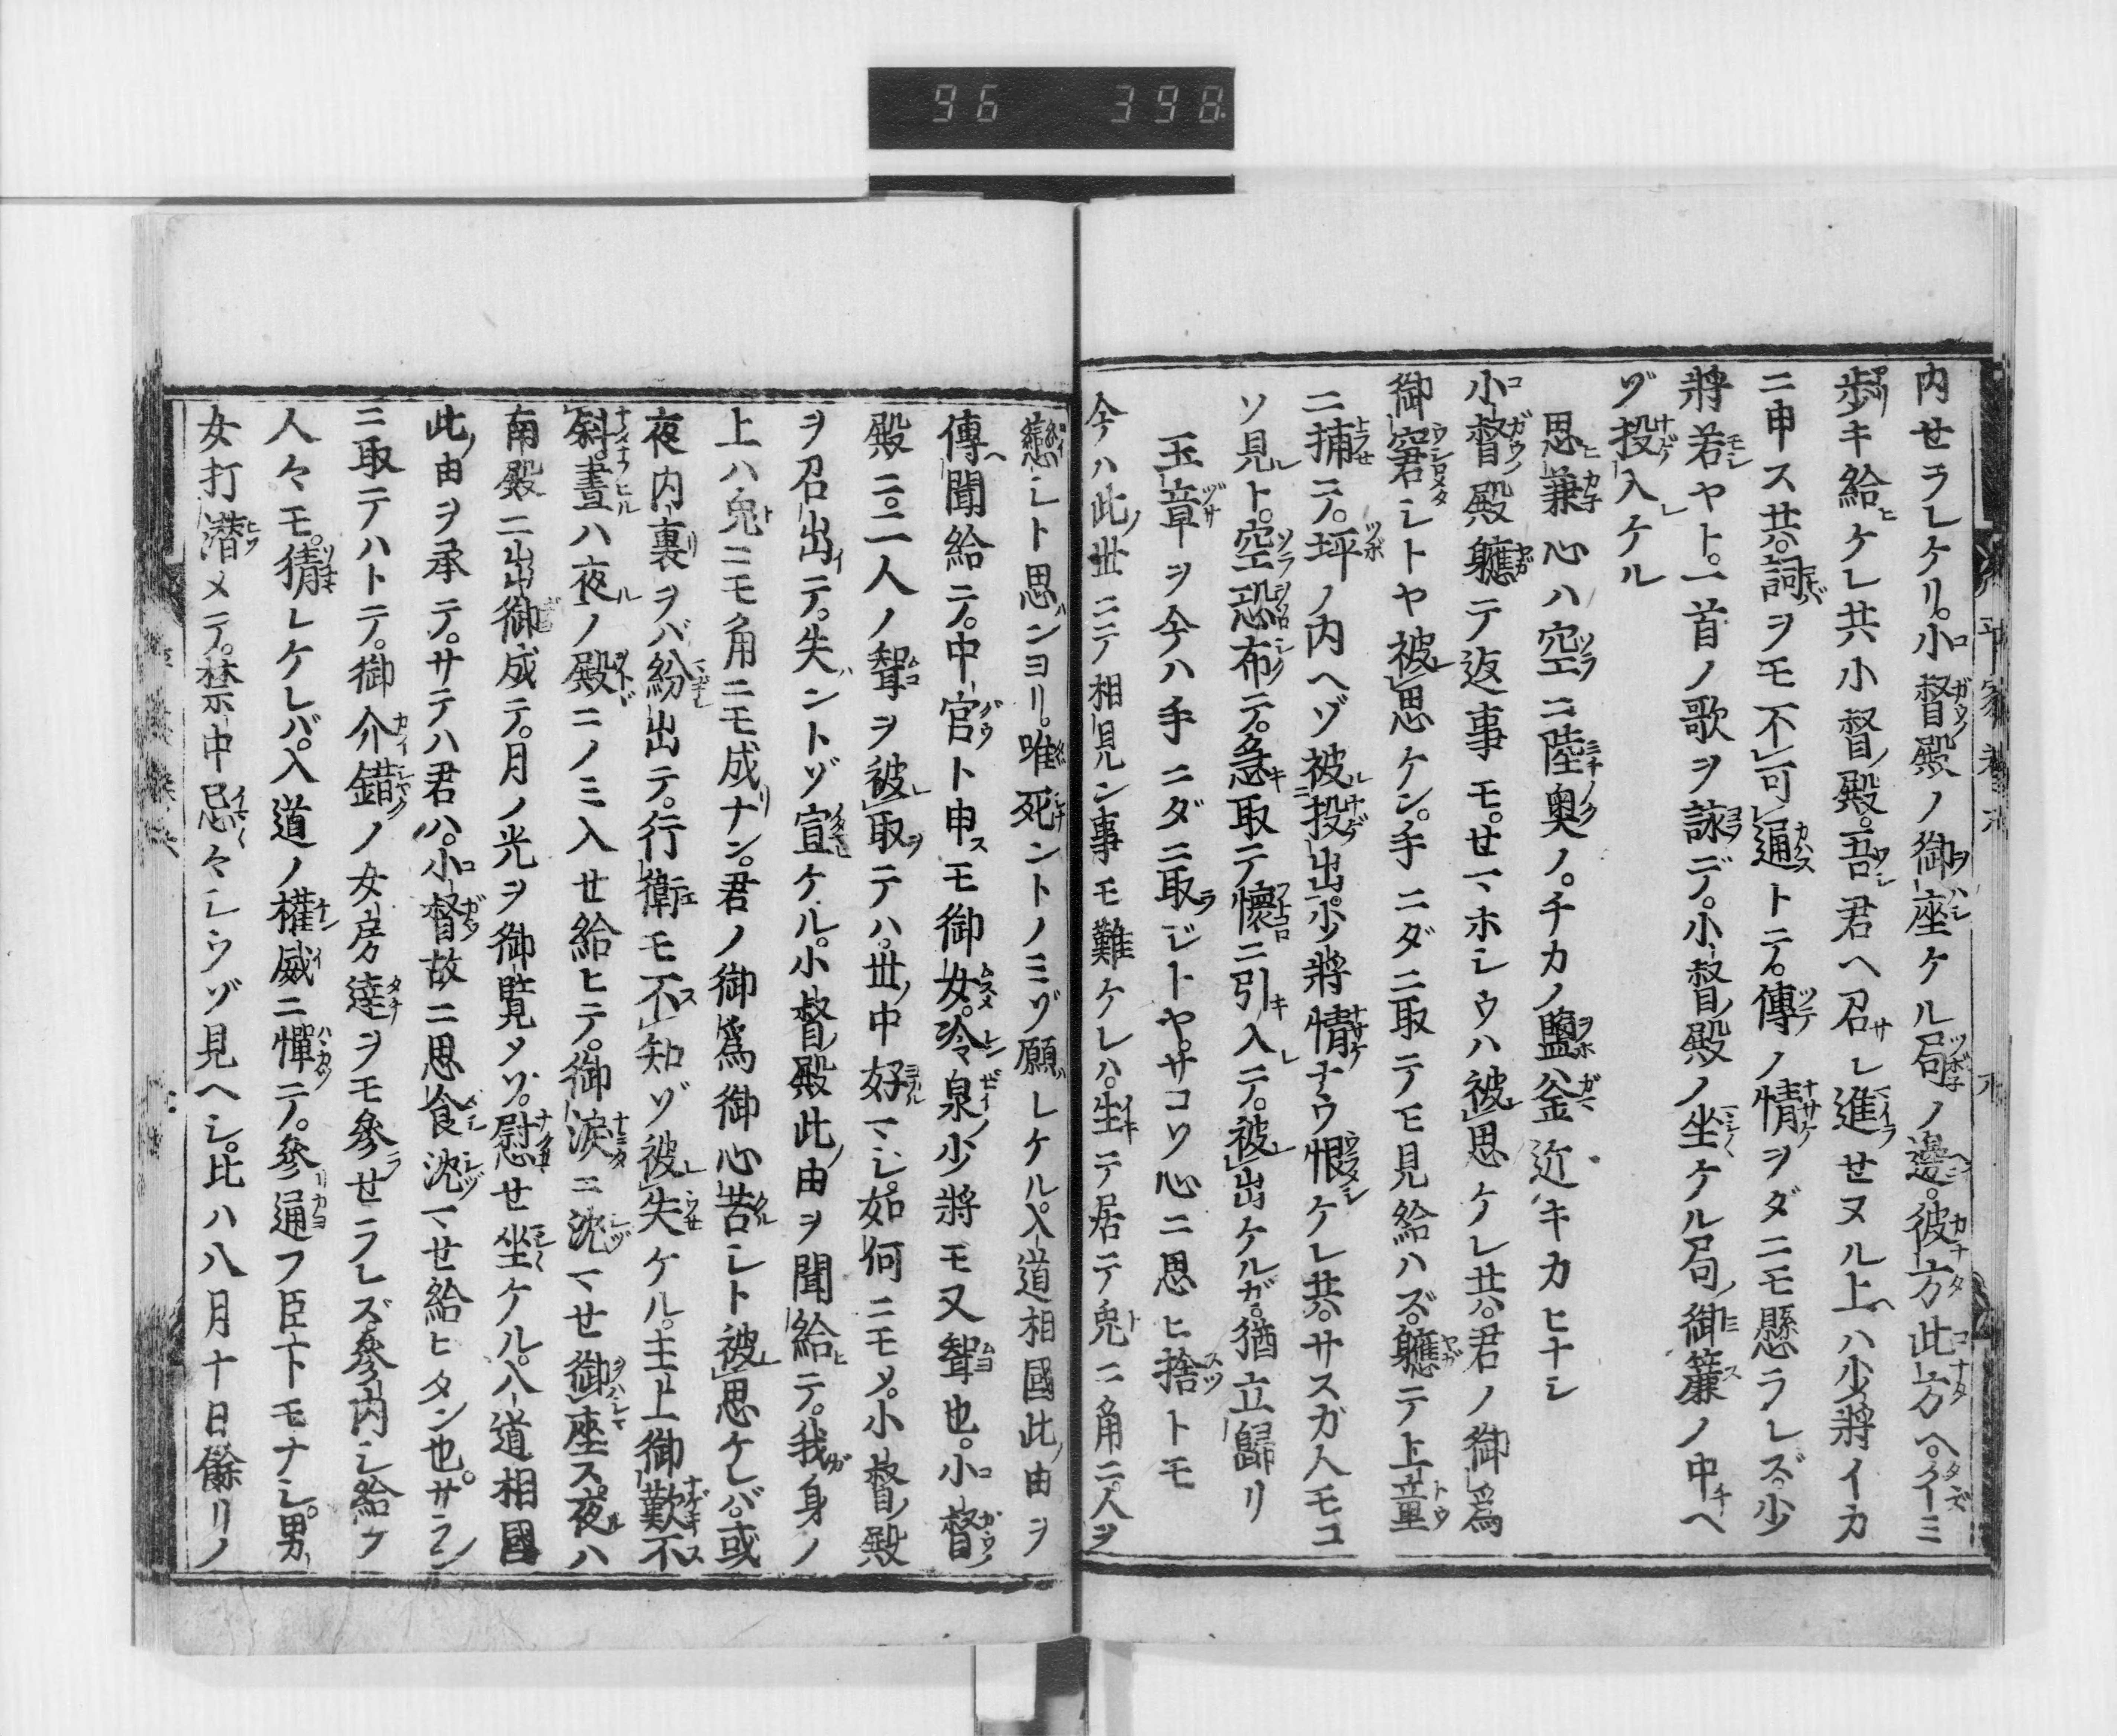 96 398
内せラレケリ。小督殿ノ御座ケル局ノ邊。彼方此方ヘ。イミ
歩キ給ケレ共小督殿。吾君ヘ召レ進せヌル上ハ少將イカ
ニ申ス共。詞ヲモ不可通トテ。傳ノ情ヲダニモ懸ラレズ。少
將若ヤト。一首ノ歌ヲ詠デ。小督殿ノ坐ケル局御簾ノ中ヘ
ゾ投入ケル
思兼心ハ空ニ陸奥ノ。チカノ鹽釜近キカヒナシ
小督殿軈テ返事モ。せマホシウハ被思ケレ共。君ノ御爲
御窘シトヤ被思ケン。手ニダニ取テモ見給ハズ。軈テ上童
ニ捕テ。坪ノ内ヘゾ被投出。少將情ナウ恨ケレ共。サスガ人モコ
ソ見ト。空恐布テ。急取テ懷ニ引入テ。被出ケルガ。猶立歸リ
玉章ヲ今ハ手ニダニ取ジトヤ。サコソ心ニ思ヒ捨トモ
今ハ此世ニテ相見ン事モ難ケレハ。生テ居テ兎ニ角ニ。人ヲ
戀シト思ンヨリ。唯死ントノミゾ願レケル。入道相國此由ヲ
傳聞給テ。中宮ト申スモ御女。冷泉少將モ又聟也。小督
殿ニ。二人ノ聟ヲ被取テハ。世中好マシ。如何ニモメ。小督殿
ヲ召出テ。失ントゾ宣ケル。小督殿此由ヲ聞給テ。我身ノ
上ハ兎ニモ角ニモ成ナン。君ノ御爲御心苦シト被思ケレバ。或
夜内裏ヲバ紛出テ。行衛モ不知ゾ被失ケル。主上御歎不
斜。晝ハ夜ノ殿ニノミ入せ給ヒテ。御淚ニ沈マせ御座ス。夜ハ
南殿ニ出御成テ。月ノ光ヲ御覽メソ。慰せ坐ケル。入道相國
此由ヲ承テ。サテハ君ハ。小督故ニ思食沈マせ給ヒタン也。サラン
ニ取テハトテ。御介錯ノ女房達ヲモ參せラレズ。參内シ給フ
人々モ。猜レケレバ。入道ノ權威ニ憚テ。參通フ臣下モナシ。男
女打潜メテ。禁中忌々シウゾ見ヘシ。比ハ八月十日餘リノ